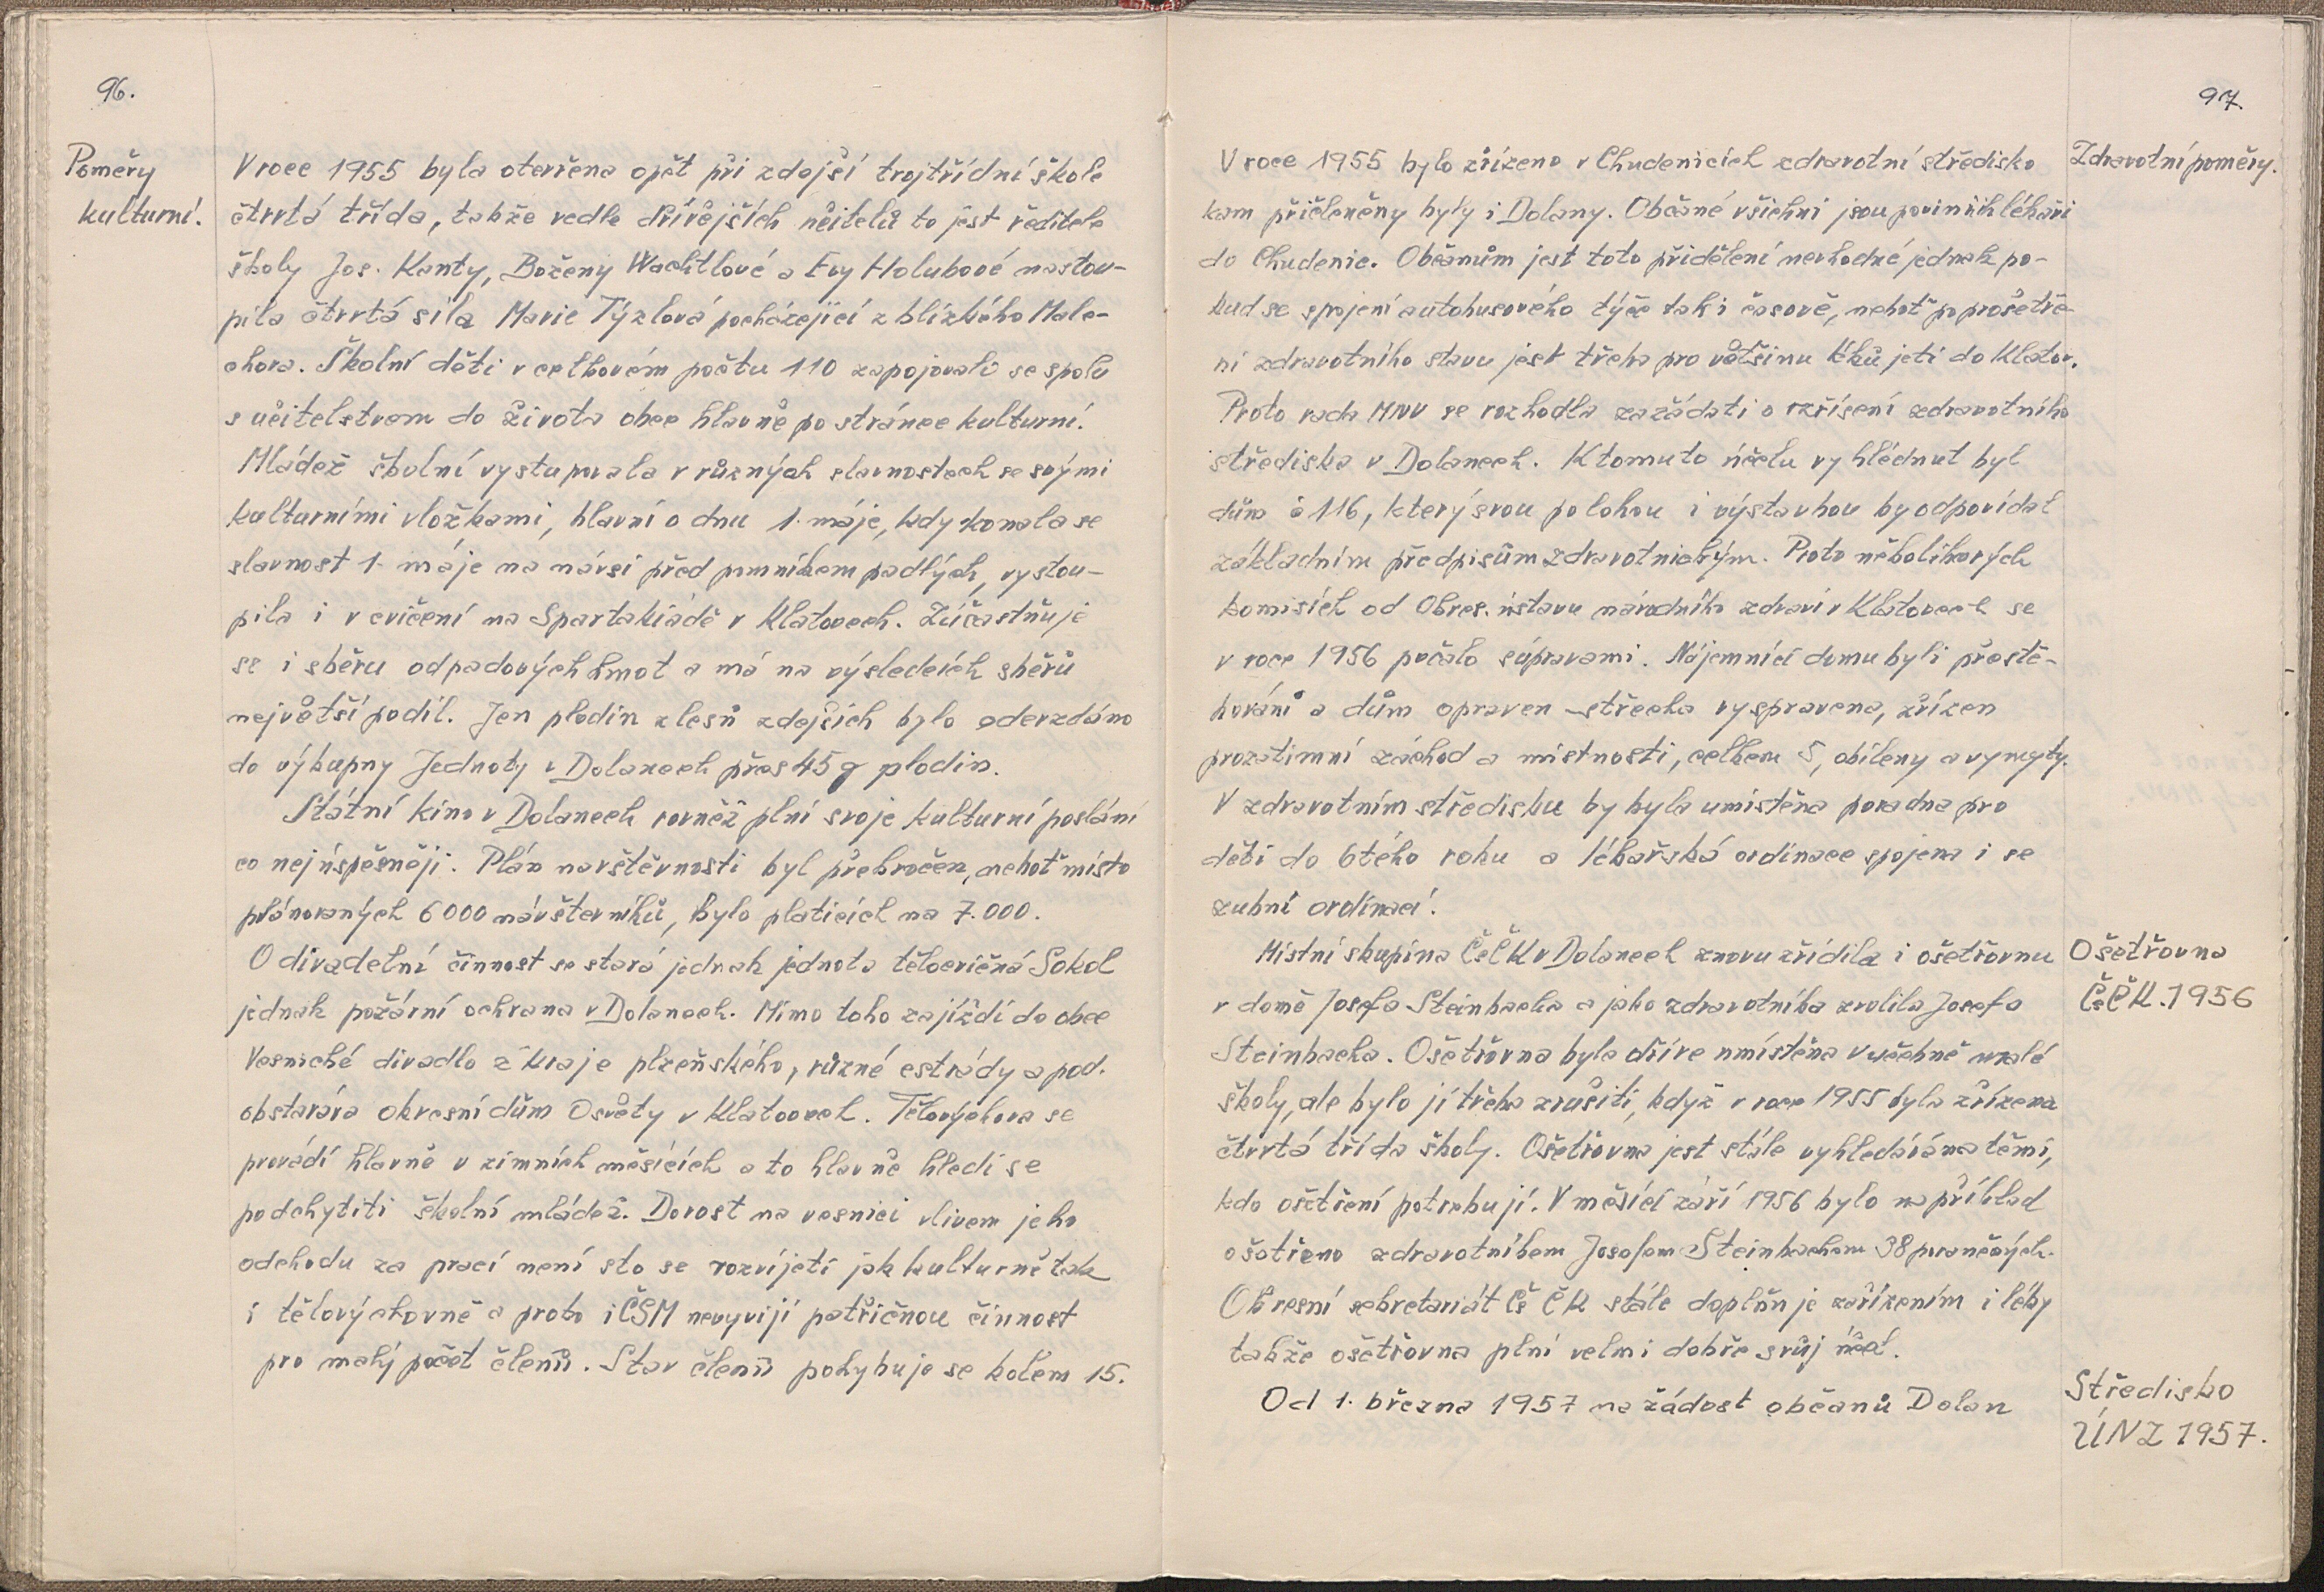 96.
Poměry
kulturní.
V roce 1955 byla otevřena opět při zdejší trojtřídní škole
čtvrtá třída, takže vedle dřívějších učitelů to jest ředitele
školy Jos. Kanty, Boženy Wachtlové a Evy Holubové nastou-
pila čtvrtá síla Marie Týzlová pocházející z blízkého Male-
chova. Školní děti v celkovém počtu 110 zapojovali se spolu
s učitelstvem do života obce hlavně po stránce kulturní.
Mládež školní vystupovala v různých slavnostech se svými
kulturními vložkami, hlavní o dnu 1. máje, kdy konala se
slavnost 1. máje na návsi před pomníkem padlých, vystou-
pila i v cvičení na Spartakiádě v Klatovech. Zúčastňuje
se i sběru odpadových hmot a má na výsledcích sběrů
největší podíl. Jen plodin z lesů zdejších bylo oderzdáno
do výkupny Jednoty v Dolanech přes 45 q plodin.
Státní kino v Dolanech rovněž plní svoje kulturní poslání
co nejúspěšněji. Plán navštěvnosti byl překročen, neboť místo
plánovaných 6000 návštevníků, bylo platících na 7.000.
O divadelní činnost se stará jednak jednota tělocvičná Sokol
jednak požární ochrana v Dolanech. Mimo toho zajíždí do obce
Vesnické divadlo z kraje plzeňského, různé estrády a pod.
obstarává okresní dům Osvěty v Klatovech. Tělovýchova se
provádí hlavně v zimních měsících a to hlavně hledí se
podchytiti školní mládež. Dorost na vesnici vlivem jeho
odchodu za prací není sto se rozvíjeti jak kulturně tak
i tělovýchovně a proto i ČSM nevyvijí patřičnou činnost
pro malý počet členů. Stav členů pohybuje se kolem 15.
97.
Zdravotní poměry.
V roce 1955 bylo zřízeno v Chudenicích zdravotní středisko
kam přičleněny byly i Dolany. Občané všichni jsou povinni k lékaři
do Chudenic. Občanům jest toto přidělení nevhodné jednak po-
kud se spojení autobusového týče tak i časově, neboť po prošetře-
ní zdravotního stavu jest třeba pro většinu léků jeti do Klatov.
Proto rada MNV se rozhodla zažádati o zřísení zdravotního
střediska v Dolanech. K tomuto účelu vyhlédnut byl
dům č 116, který svou polohou i výstavbou by odpovídal
základním předpisům zdravotnickým. Proto několikerých
komisích od Okres. ústavu národního zdraví v Klatovech se
v roce 1956 počalo súpravami. Nájemníci domu byli přestě-
hováni a dům opraven - střecha vyspravena, zřízen
prozatimní záchod a místnosti, celkem 5, obíleny a vymyty.
V zdravotním středisku by byla umístěna poradna pro
děti do 6tého roku a lékařská ordinace spojena i se
zubní ordinací.
Místní skupina ČsČK v Dolanech znovu zřídila i ošetřovnu
v domě Josefa Steinbacha a jako zdravotníka zvolila Josefa
Steinbacha. Ošetřovna byla dříve umístěna v učebně malé
školy, ale bylo jí třeba zrušiti, když v roce 1955 byla zřízena
čtvrtá třída školy. Ošetřovna jest stále vyhledávána těmi,
kdo ošetření potřebují. V měsíci září 1956 bylo na příklad
ošetřeno zdravotníkem Josefem Steinbachem 38 poraněných.
Okresní sekretariát Čs ČK stále doplňuje zařízením i léky
takže ošetřovna plní velmi dobře svůj účel.
Od 1. března 1957 na žádost občanů Dolan
Ošetřovna
ČsČK. 1956
Středisko
ÚNZ 1957.